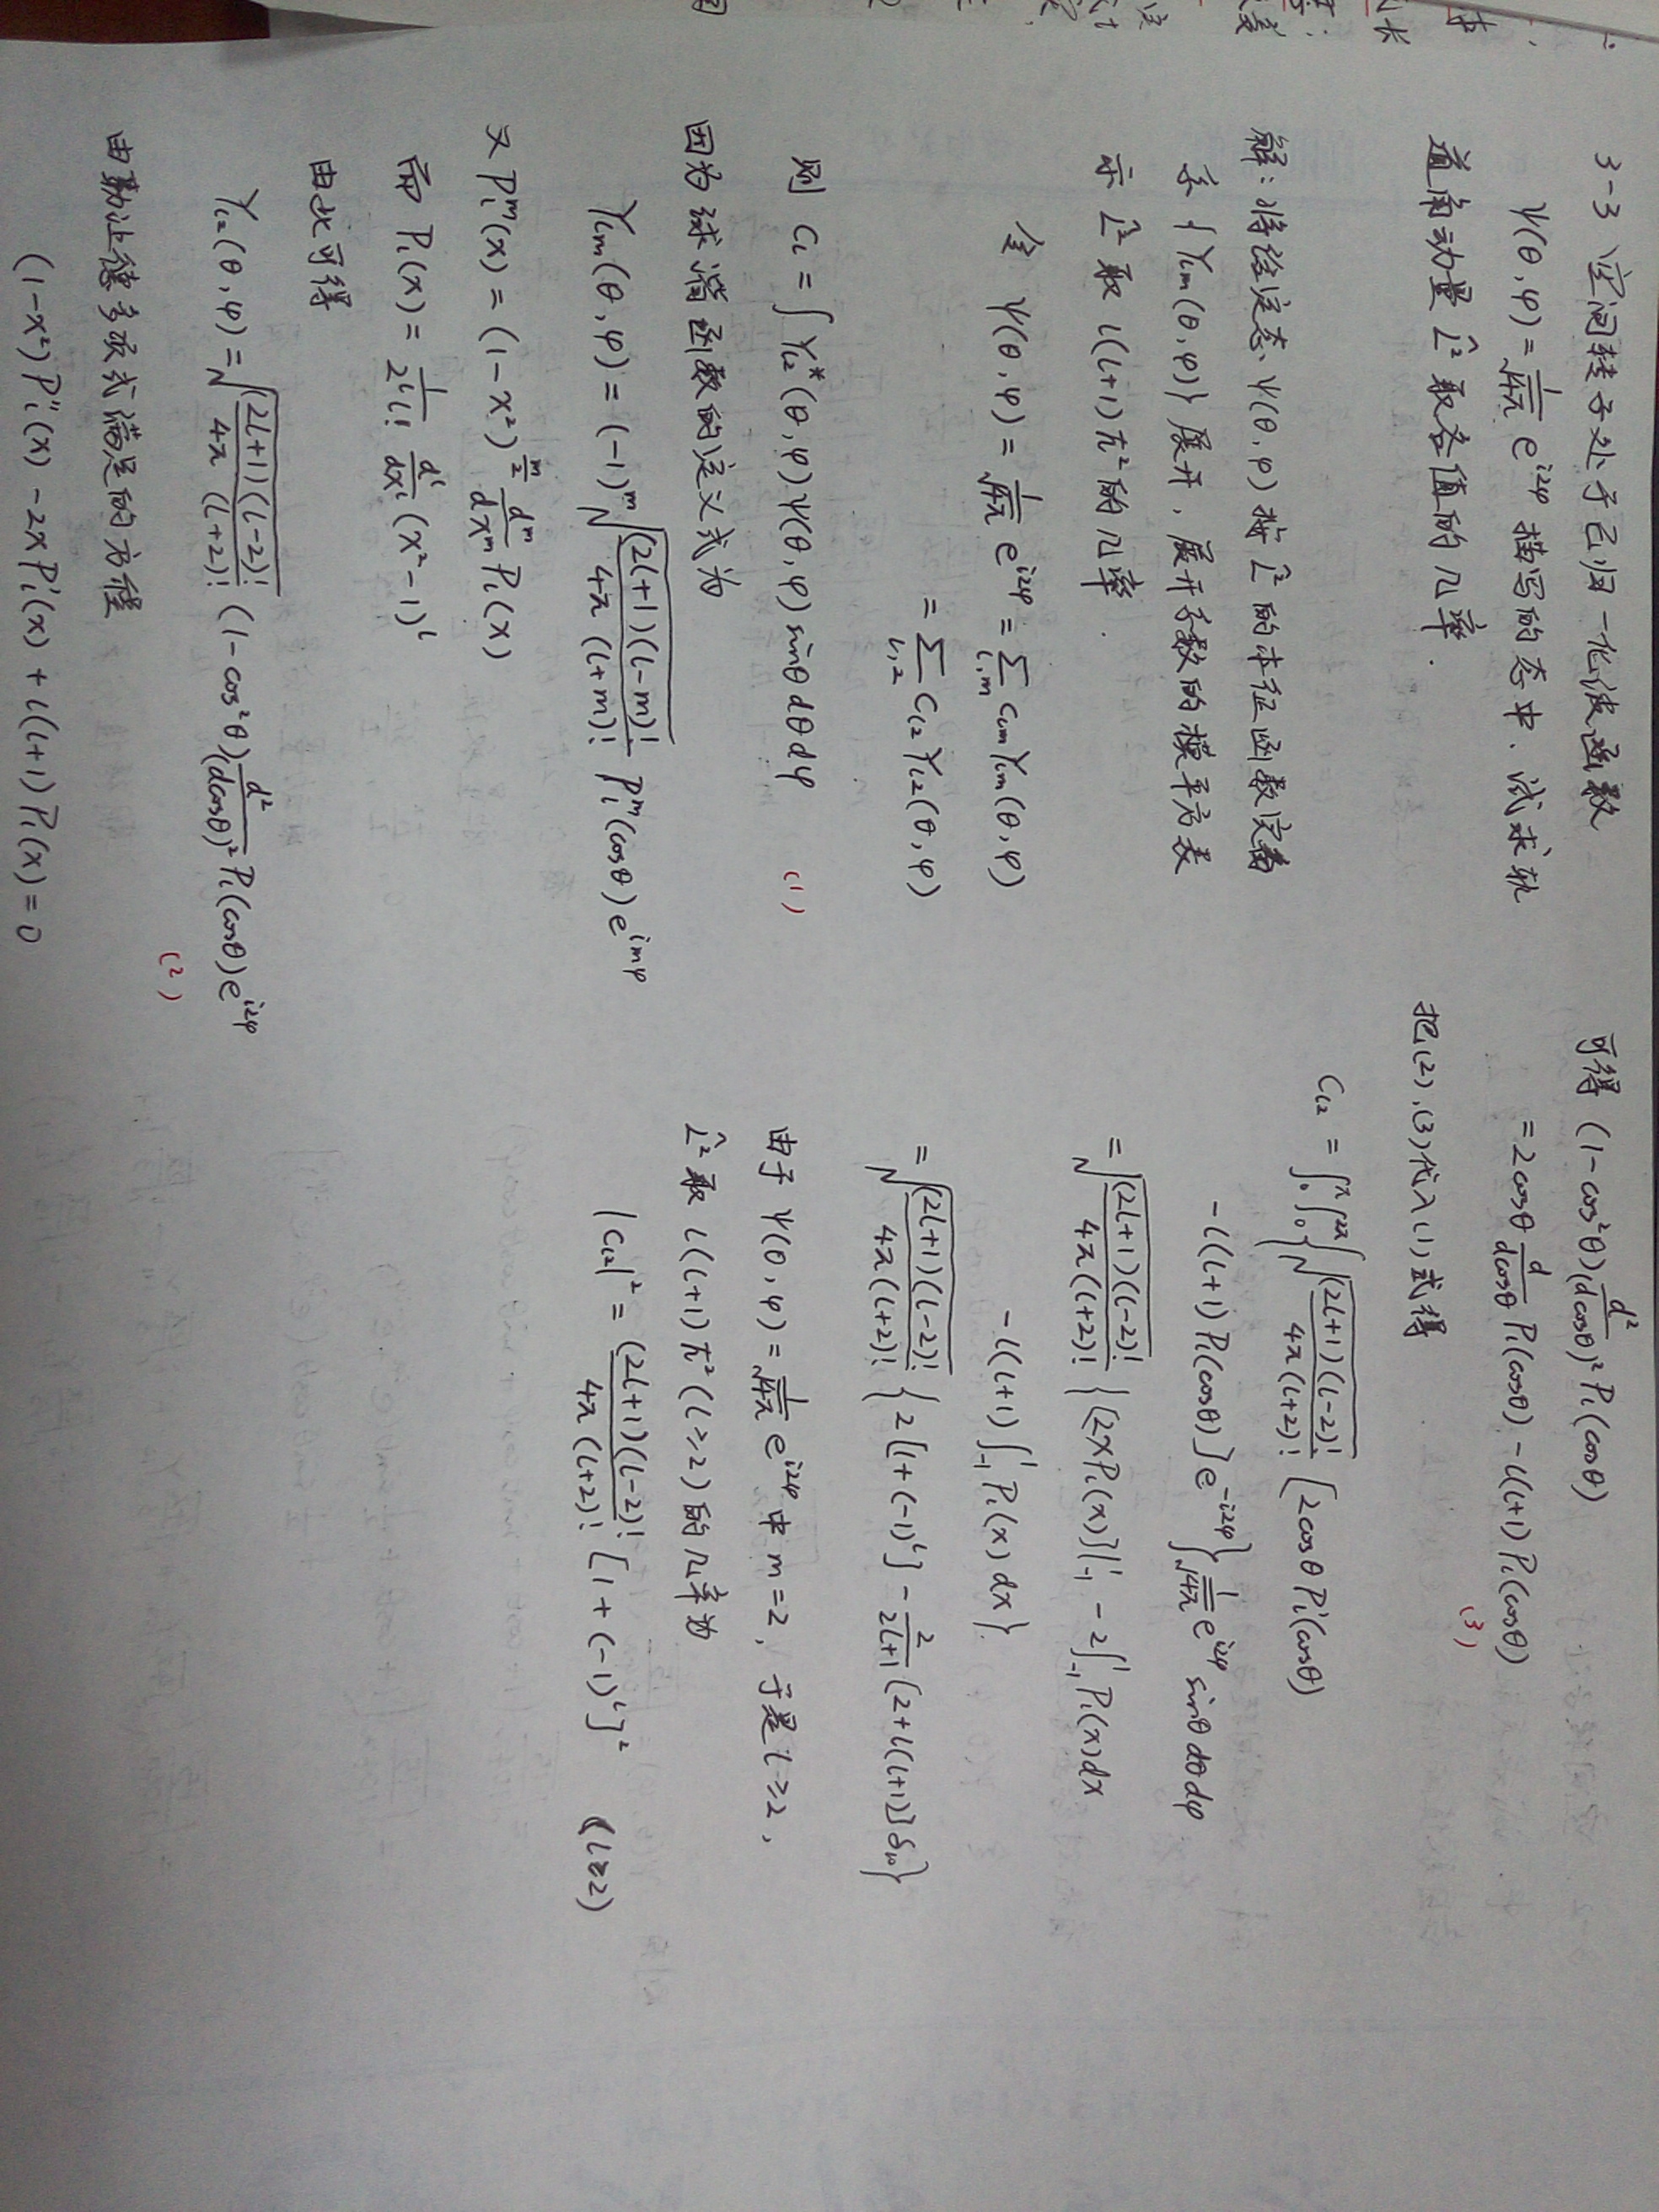 3-3 空间转子处于已归一化波函数
ψ(θ,φ) = 1/√4π e^{i2φ} 描写的态中、试求轨
道角动量 L̂² 取各值的几率.
解:将给定态ψ(θ,φ)按 L̂² 的本征函数完备
系{Y_{lm}(θ,φ)}展开,展开系数的模平方表
示 L̂² 取 l(l+1)ħ² 的几率.
令 ψ(θ,φ) = 1/√4π e^{i2φ} = Σ_{l,m} C_{lm} Y_{lm}(θ,φ)
= Σ_{l,2} C_{l2} Y_{l2}(θ,φ)
则 C_l = ∫ Y_{l2}^*(θ,φ) ψ(θ,φ) sinθ dθ dφ (1)
因为球谐函数的定义式为
Y_{lm}(θ,φ) = (-1)^m √((2l+1)(l-m)!/4π(l+m)!) P_l^m(cosθ) e^{imφ}
又 P_l^m(x) = (1-x²)^{m/2} d^m/dx^m P_l(x)
而 P_l(x) = 1/(2^l l!) d^l/dx^l (x²-1)^l
由此可得
Y_{l2}(θ,φ) = √((2l+1)(l-2)!/4π(l+2)!) (1-cos²θ) d²/(dcosθ)² P_l(cosθ) e^{i2φ}
(2)
由勒让德多项式满足的方程
(1-x²)P_l''(x) - 2xP_l'(x) + l(l+1)P_l(x) = 0
可得 (1-cos²θ) d²/(dcosθ)² P_l(cosθ)
= 2cosθ d/dcosθ P_l(cosθ) - l(l+1)P_l(cosθ)
(3)
把(2),(3)代入(1)式得
C_{l2} = ∫_0^π ∫_0^{2π} {√((2l+1)(l-2)!/4π(l+2)!) [2cosθ P_l'(cosθ)
- l(l+1)P_l(cosθ)] e^{-i2φ}} 1/√4π e^{i2φ} sinθ dθ dφ
= √((2l+1)(l-2)!/4π(l+2)!) {[2xP_l(x)]|_{-1}^1 - 2∫_{-1}^1 P_l(x)dx
- l(l+1)∫_{-1}^1 P_l(x)dx}
= √((2l+1)(l-2)!/4π(l+2)!) {2[1+(-1)^l] - 2/(2l+1) [2+l(l+1)]δ_{l0}}
由于 ψ(θ,φ) = 1/√4π e^{i2φ} 中 m=2, 于是 l≥2,
L̂² 取 l(l+1)ħ² (l≥2)的几率为
|C_{l2}|² = (2l+1)(l-2)!/4π(l+2)! [1+(-1)^l]² (l≥2)